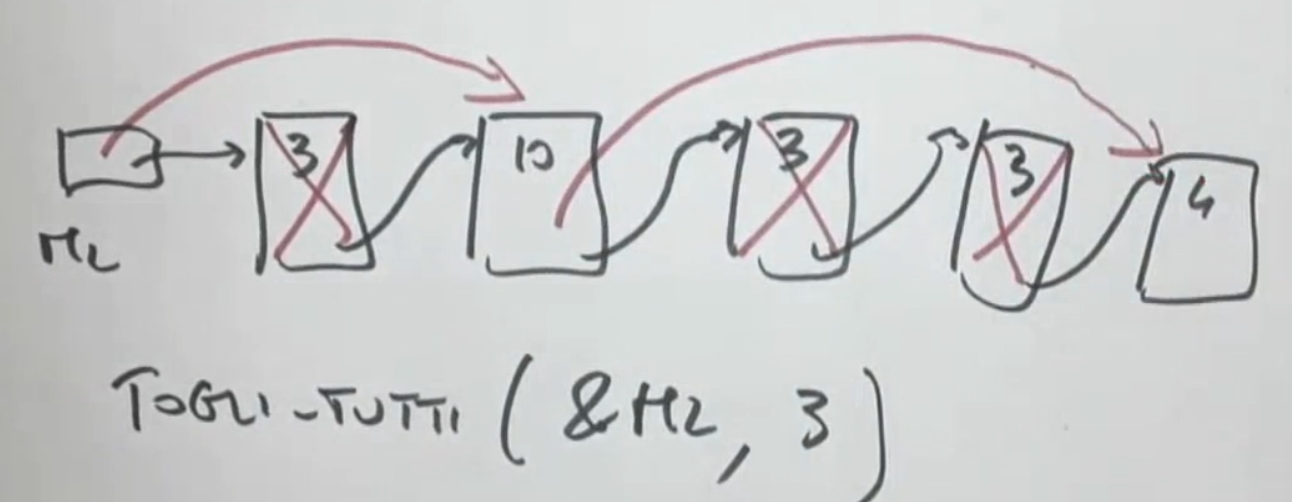 3 10 3 3 4
ML
TOGLI-TUTTI (&ML, 3)